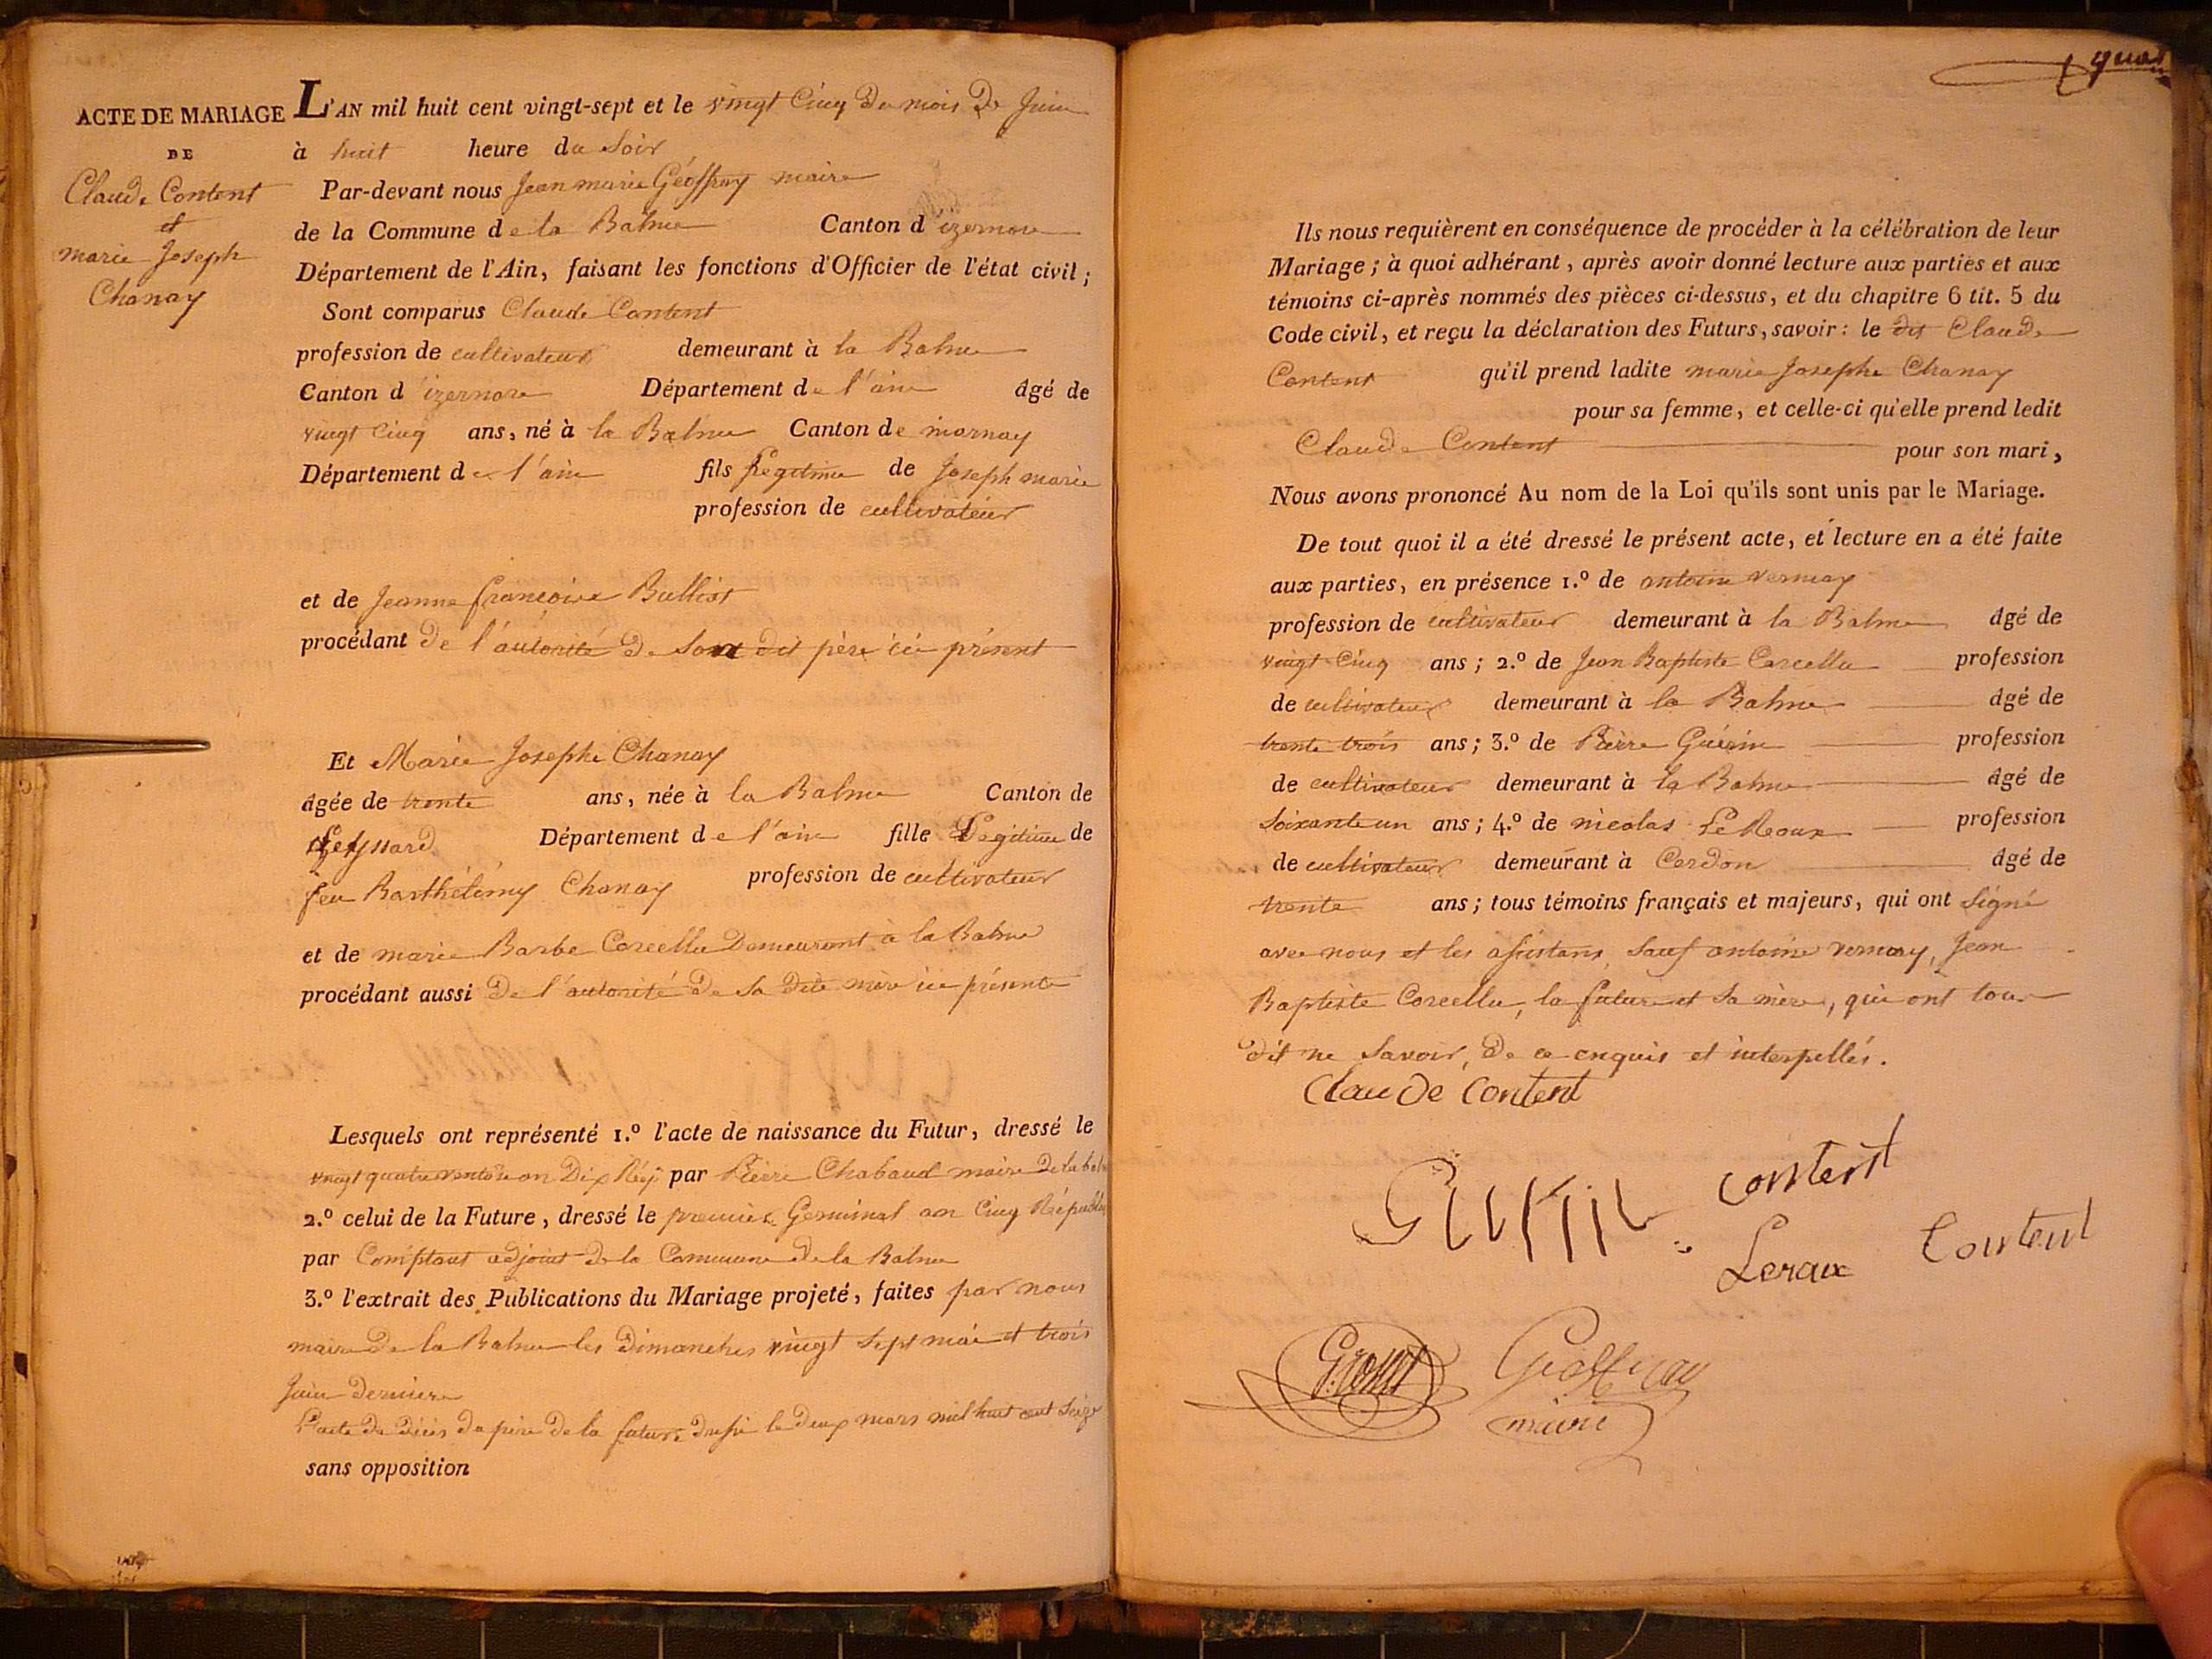 ACTE DE MARIAGE
DE
Claude Content
et
marie Joseph
Chanay
L'AN mil huit cent vingt-sept et le vingt Cinq du mois De Juin
à huit heure du Soir
Par-devant nous Jean marie Géoffray maire
de la Commune de la Balme Canton d'izernore
Département de l'Ain, faisant les fonctions d'Officier de l'état civil;
Sont comparus Claude Content
profession de cultivateur demeurant à la Balme
Canton d'izernore Département de l'ain âgé de
vingt Cinq ans, né à la Balme Canton de mornay
Département de l'ain fils Légitime de Joseph marie
profession de cultivateur
et de Jeanne françoise Bulliot
procédant De l'autorité De Son dit père ici présent
Et Marie Josephe Chanay
âgée de trente ans, née à la Balme Canton de
Leyssard Département de l'ain fille Légitime de
feu Barthélémy Chanay profession de cultivateur
et de marie Barbe Corcellu Demeurant à la Balme
procédant aussi De l'autorité De Sa Dite mère ici présente
Lesquels ont représenté 1.º l'acte de naissance du Futur, dressé le
vingt quatre ventose an Dix Rép par Pierre Chabaud maire De la
2.º celui de la Future, dressé le premier Germinal an Cinq
par Comptant adjoint De la Commune De la Balme
3.º l'extrait des Publications du Mariage projeté, faites par nous
maire De la Balme les Dimanches vingt Sept mai et trois
Juin Dernier
L'acte De Décès du père De la future Dressé le Deux mars mil huit cent Seize
sans opposition
Ils nous requièrent en conséquence de procéder à la célébration de leur
Mariage; à quoi adhérant, après avoir donné lecture aux parties et aux
témoins ci-après nommés des pièces ci-dessus, et du chapitre 6 tit. 5 du
Code civil, et reçu la déclaration des Futurs, savoir: le dit Claude
Content qu'il prend ladite marie Josephe Chanay
pour sa femme, et celle-ci qu'elle prend ledit
Claude Content pour son mari,
Nous avons prononcé Au nom de la Loi qu'ils sont unis par le Mariage.
De tout quoi il a été dressé le présent acte, et lecture en a été faite
aux parties, en présence 1.º de antoine vernay
profession de cultivateur demeurant à la Balme âgé de
vingt Cinq ans; 2.º de Jean Baptiste Corcellu profession
de cultivateur demeurant à la Balme âgé de
trente trois ans; 3.º de Pierre Guérin profession
de cultivateur demeurant à la Balme âgé de
Soixante un ans; 4.º de nicolas Le Roux profession
de cultivateur demeurant à Cerdon âgé de
trente ans; tous témoins français et majeurs, qui ont Signé
avec nous et les assistans, Sauf antoine vernay, Jean
Baptiste Corcellu, la future et Sa mère, qui ont tous
dit ne Savoir, De ce enquis et interpellés.
Claude Content
content
Leraux Content
Geoffray
maire